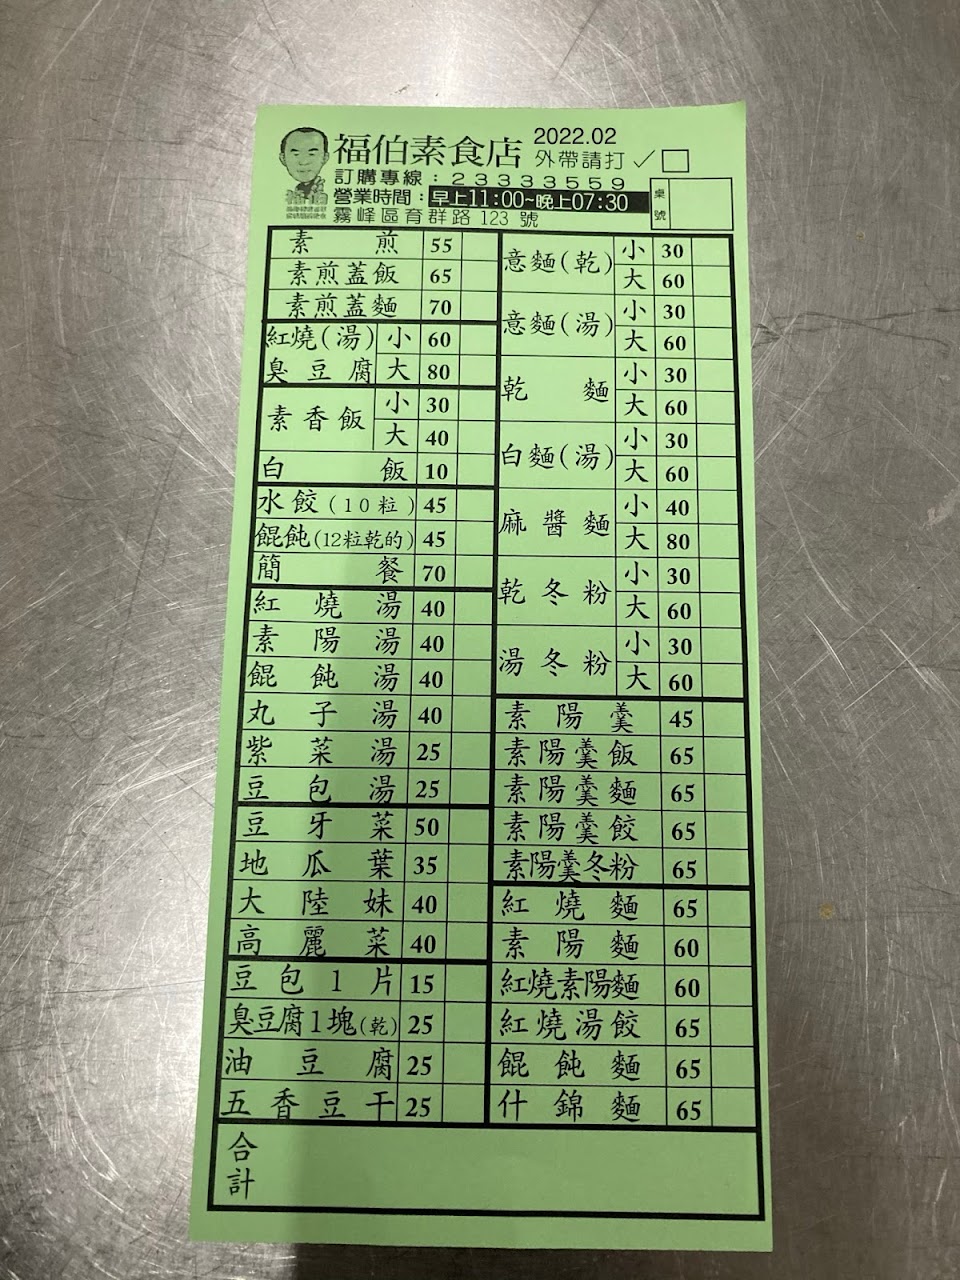 福伯素食店 2022.02
外帶請打✓□
訂購專線：23333559
營業時間：早上11:00~晚上07:30
霧峰區育群路 123 號
桌號
素煎 55
素煎蓋飯 65
素煎蓋麵 70
紅燒(湯)臭豆腐 小 60
大 80
素香飯 小 30
大 40
白飯 10
水餃(10粒) 45
餛飩(12粒乾的) 45
簡餐 70
紅燒湯 40
素陽湯 40
餛飩湯 40
丸子湯 40
紫菜湯 25
豆包湯 25
豆牙菜 50
地瓜葉 35
大陸妹 40
高麗菜 40
豆包1片 15
臭豆腐1塊(乾) 25
油豆腐 25
五香豆干 25
意麵(乾) 小 30
大 60
意麵(湯) 小 30
大 60
乾麵 小 30
大 60
白麵(湯) 小 30
大 60
麻醬麵 小 40
大 80
乾冬粉 小 30
大 60
湯冬粉 小 30
大 60
素陽羹 45
素陽羹飯 65
素陽羹麵 65
素陽羹餃 65
素陽羹冬粉 65
紅燒麵 65
素陽麵 60
紅燒素陽麵 60
紅燒湯餃 65
餛飩麵 65
什錦麵 65
合計